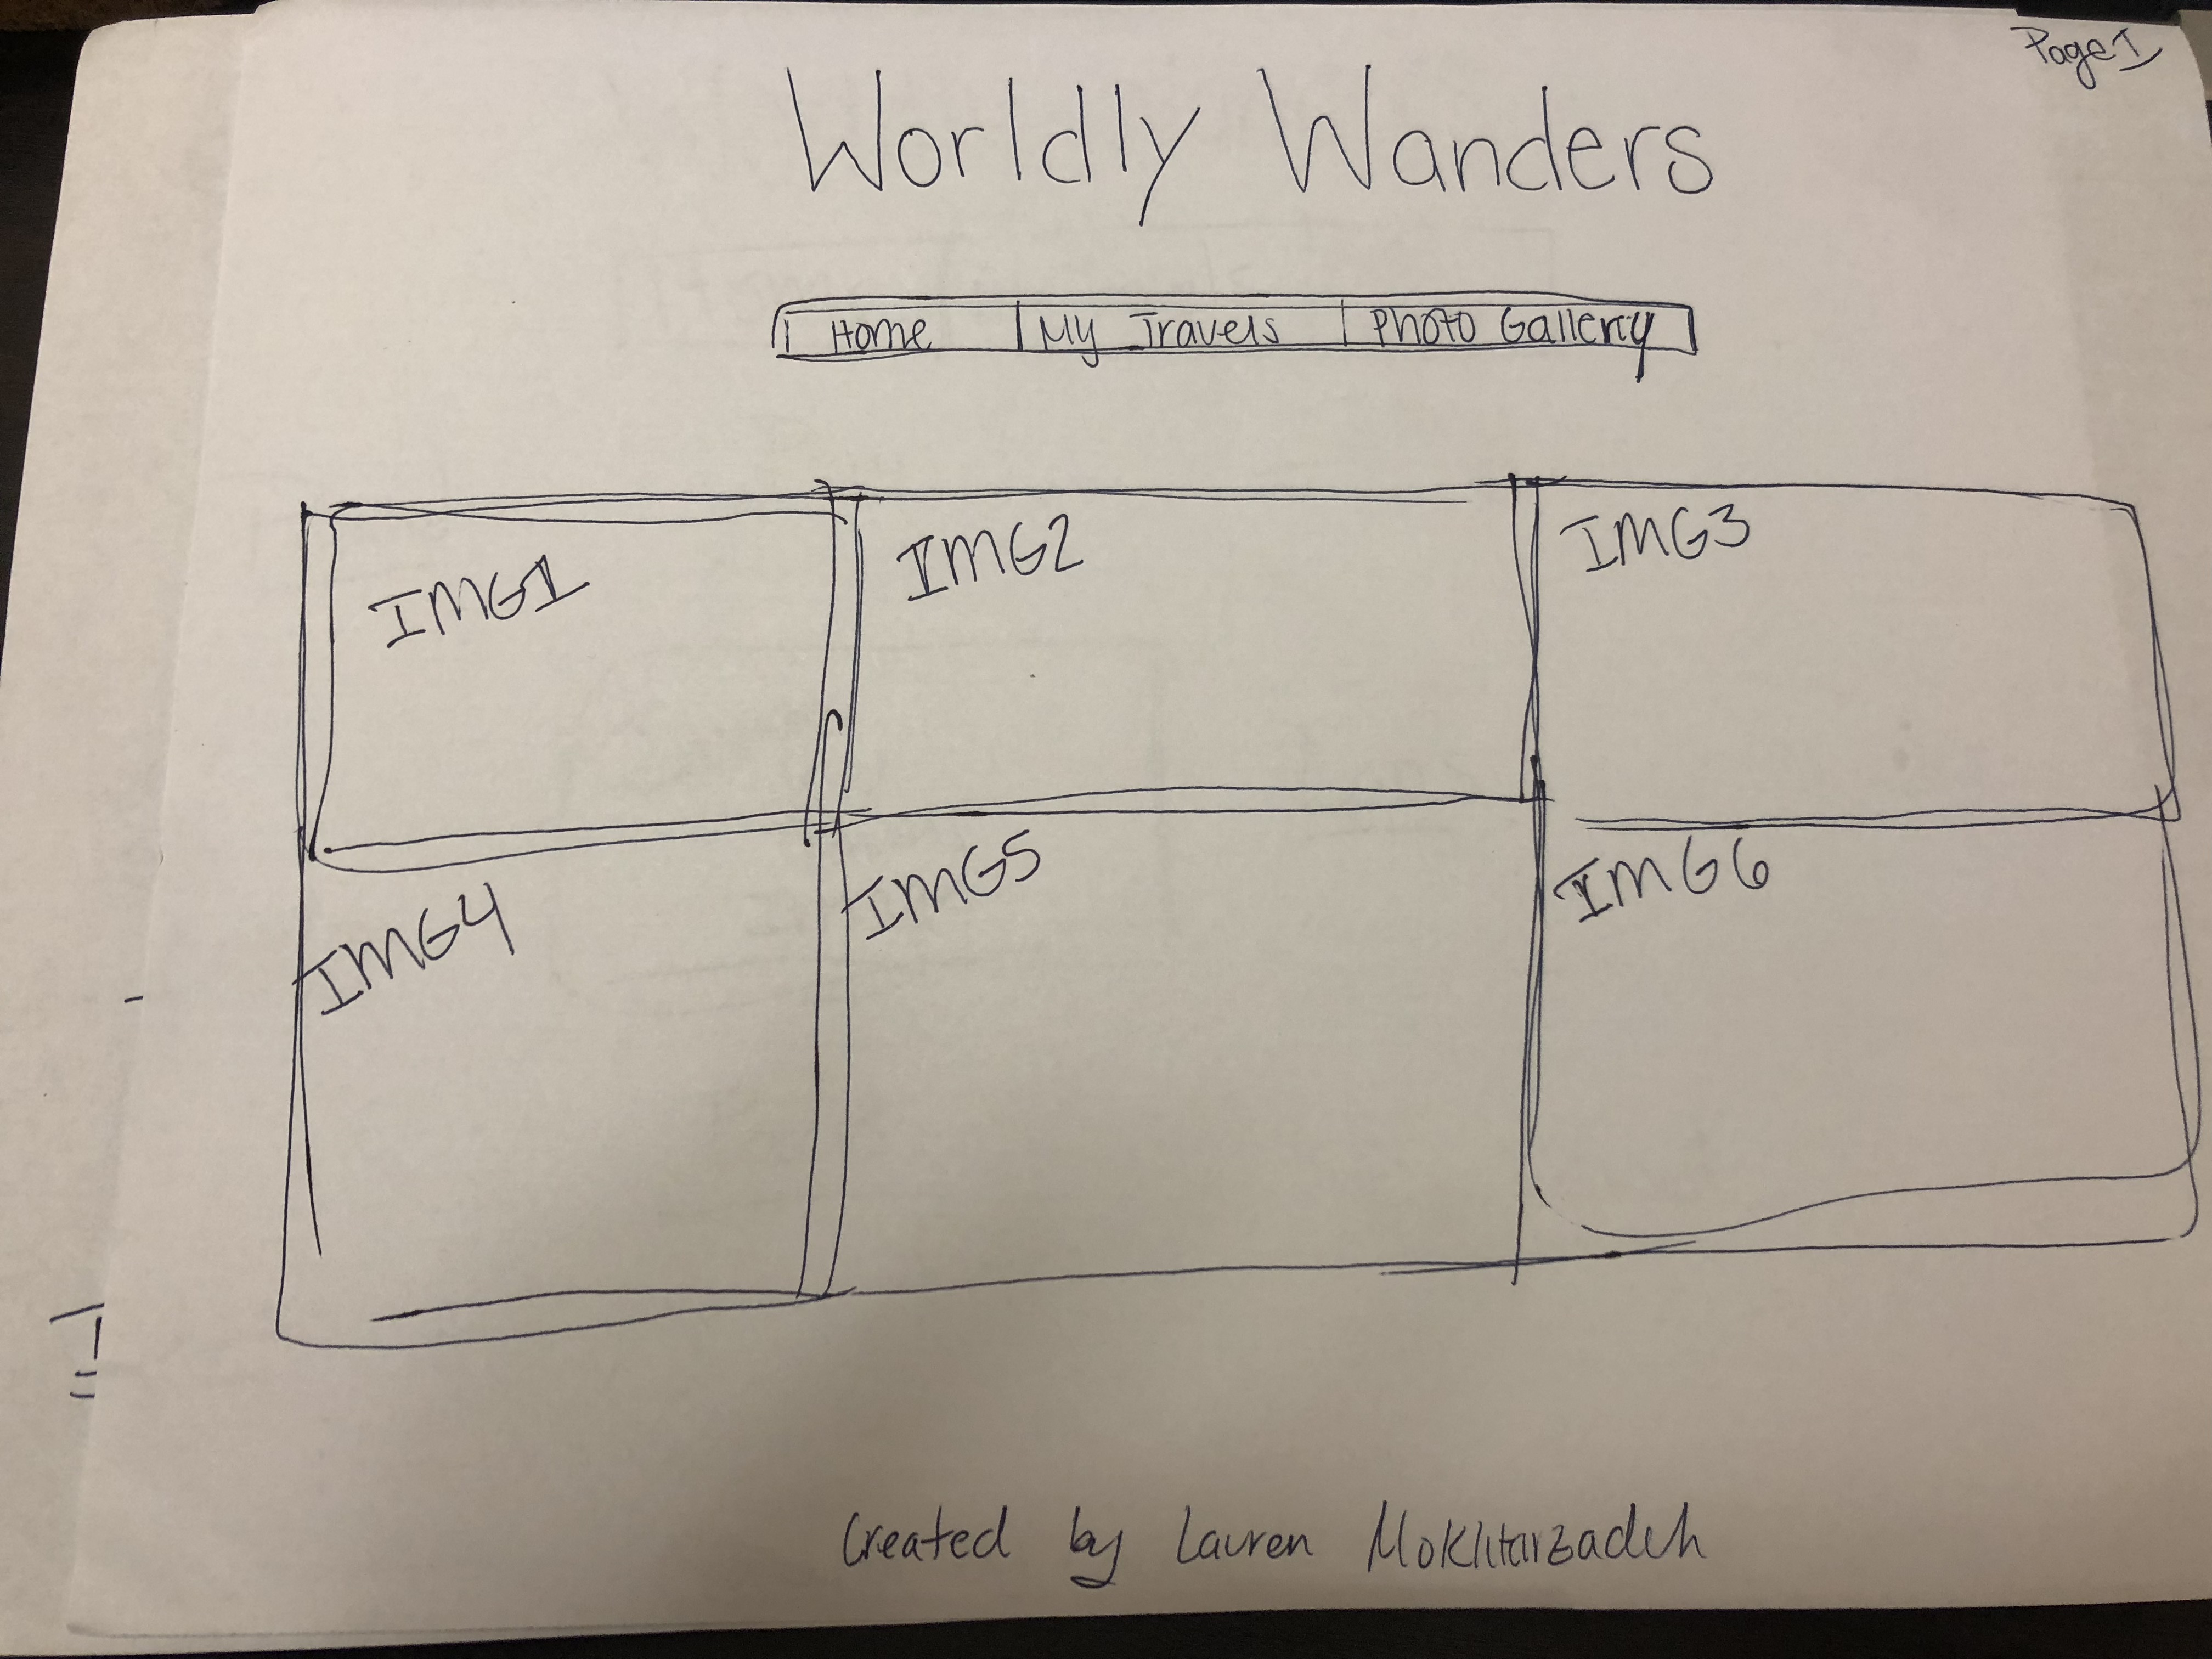 Page I
Worldly Wanders
Home | My Travels | Photo Gallery
IMG1 IMG2 IMG3
IMG4 IMG5 IMG6
Created by Lauren Mokhtarzadeh